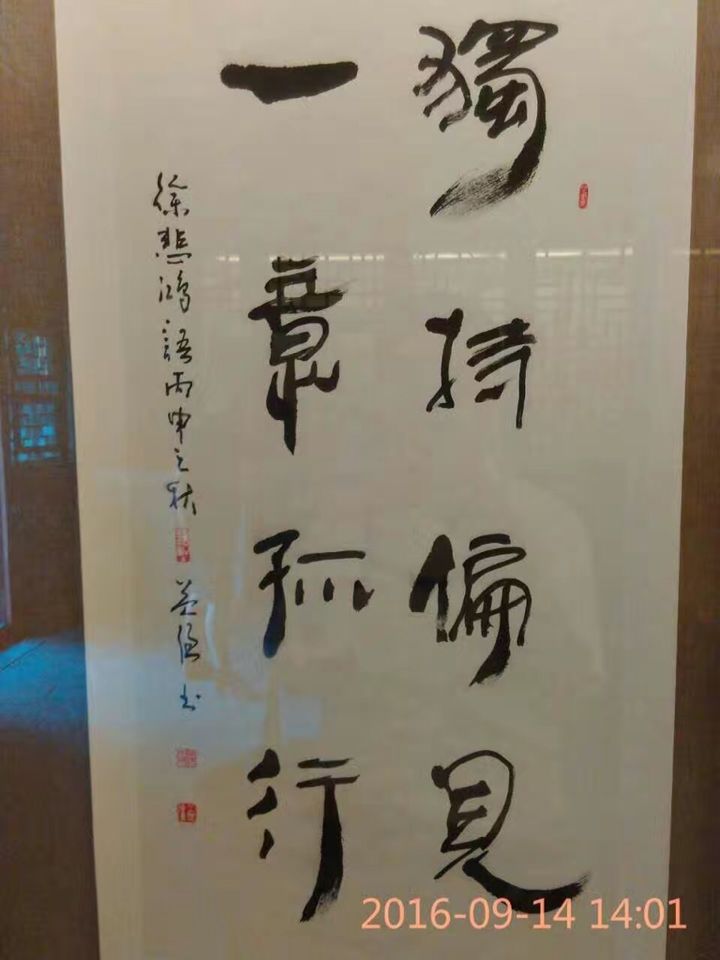 獨持偏見
一意孤行
徐悲鴻語丙申之秋
益 书
2016-09-14 14:01